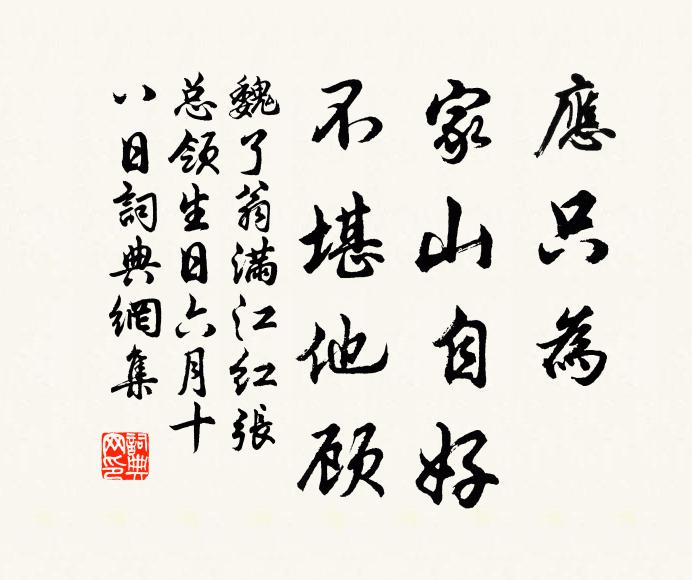 應只為
家山自好
不堪他顧
魏了翁滿江红張
总領生日六月十
八日詞典網集
詞典网印